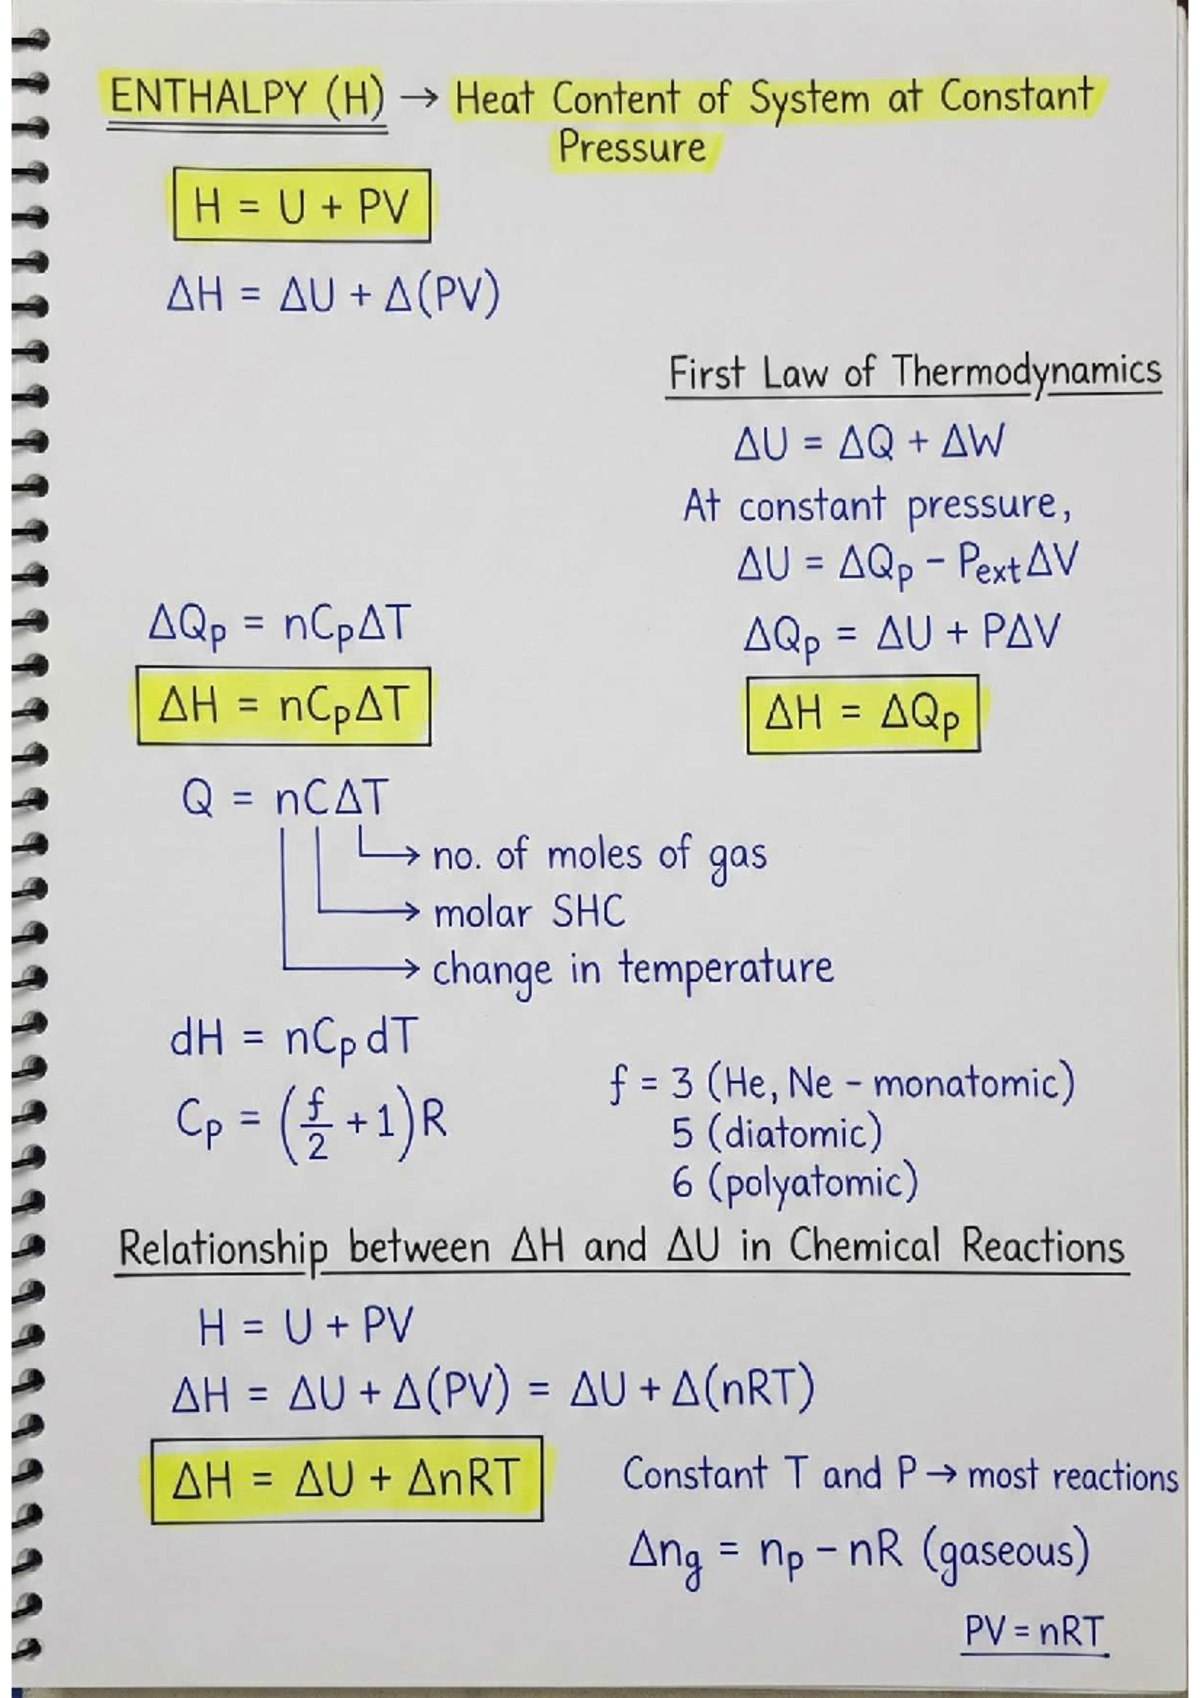 ENTHALPY (H) → Heat Content of System at Constant
Pressure
H = U + PV
ΔH = ΔU + Δ(PV)
First Law of Thermodynamics
ΔU = ΔQ + ΔW
At constant pressure,
ΔU = ΔQp − PextΔV
ΔQp = ΔU + PΔV
ΔH = ΔQp
ΔQp = nCpΔT
ΔH = nCpΔT
Q = nCΔT
→ no. of moles of gas
→ molar SHC
→ change in temperature
dH = nCp dT
Cp = (f/2 + 1)R
f = 3 (He, Ne – monatomic)
5 (diatomic)
6 (polyatomic)
Relationship between ΔH and ΔU in Chemical Reactions
H = U + PV
ΔH = ΔU + Δ(PV) = ΔU + Δ(nRT)
ΔH = ΔU + ΔnRT
Constant T and P → most reactions
Δng = np − nR (gaseous)
PV = nRT